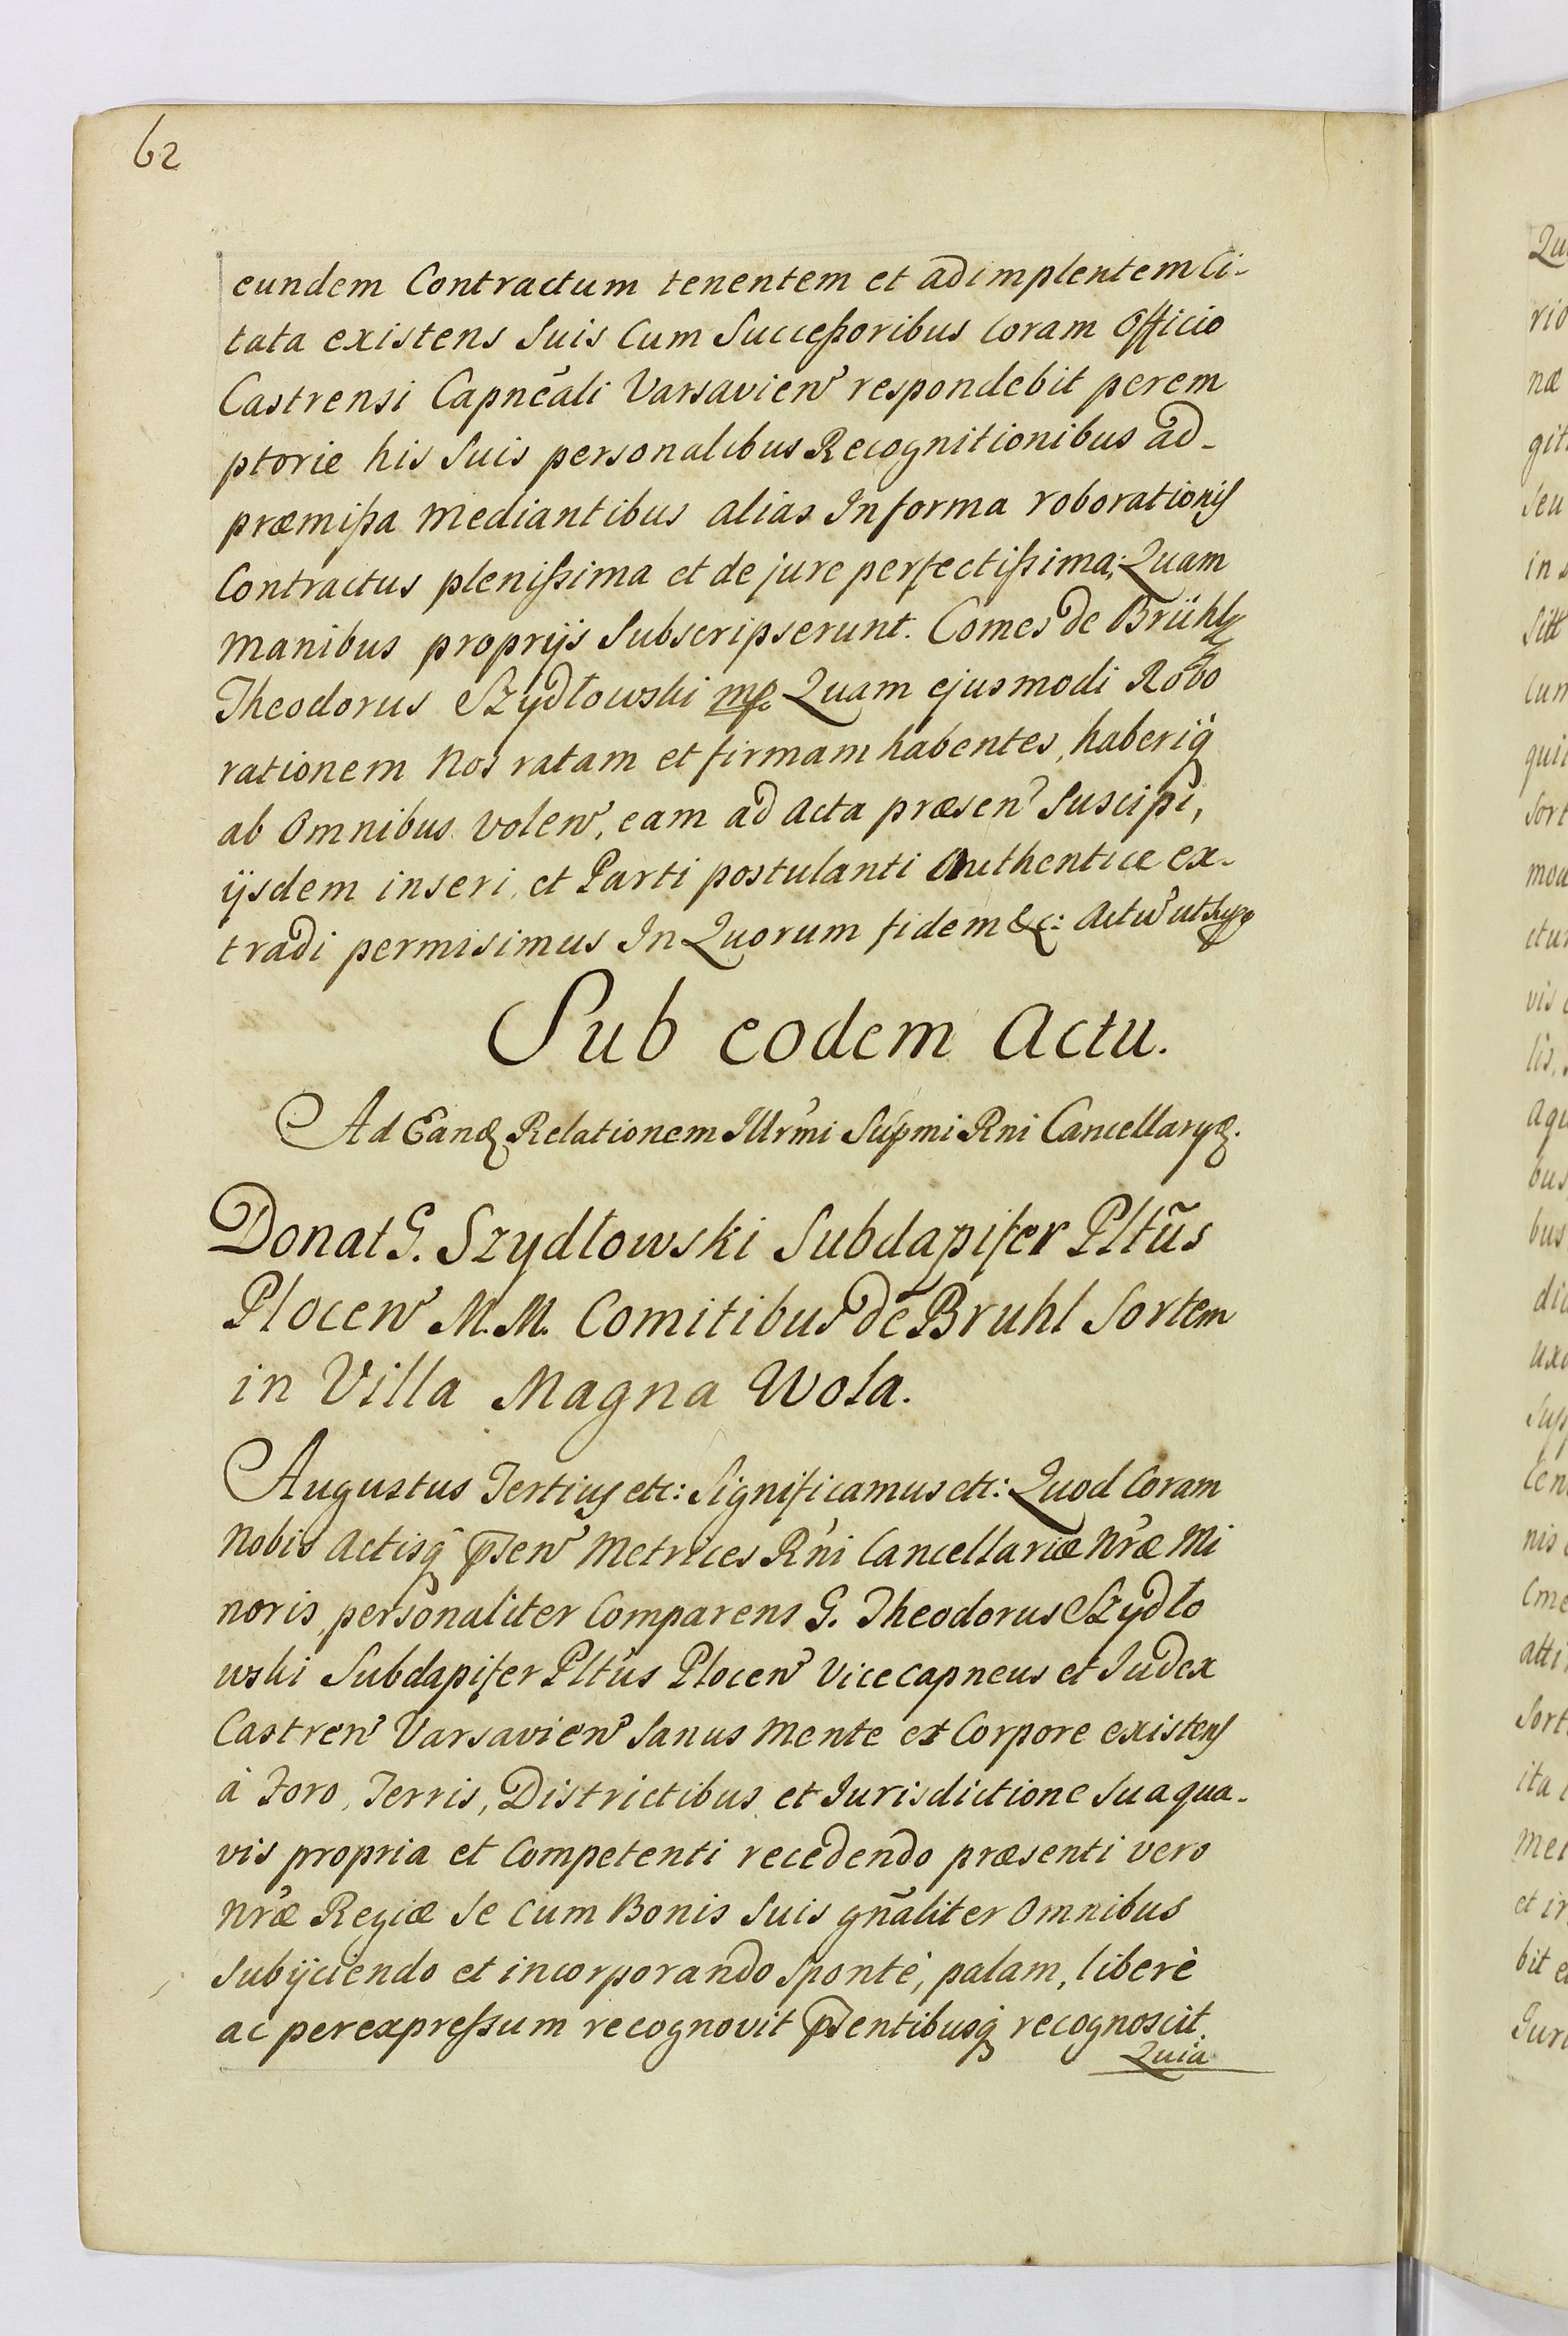 62
eundem Contractum tenentem et adimplentem Ci-
tata existens Suis Cum Successoribus coram Officio
Castrensi Capnēali Varsavien̓ respondebit perem
ptorie his Suis personalibus Recognitionibus ad-
præmissa mediantibus alias In forma roborationis
Contractus plenissima et de jure perfectissima; Quam
manibus proprijs Subscripserunt. Comes de Brühl
Theodorus Szydłowski mp. Quam ejusmodi Robo
rationem Nos ratam et firmam habentes, haberiq̓
ab Omnibus volen̓, eam ad Acta præsen̓ Suscipi,
ijsdem inseri, et Parti postulanti Authentice ex-
tradi permisimus In Quorum fidem &c: Actu̓ ut Supo
Sub eodem Actu.
Ad Eandꝫ Relationem Illrm̓i Supmi Rni Cancellaryꝫ.
Donat G. Szydłowski Subdapifer Pltũs
Plocen̓ M. M. Comitibus de Bruhl Sortem
in Villa Magna Wola.
Augustus Tertius etc: Significamus etc: Quod Coram
Nobis Actisq̓ p̄sen̓ Metrices R̓ni Cancellariæ Nr̓æ Mi
noris, personaliter Comparens G. Theodorus Szydło
wski Subdapifer Plt̓us Plocen̓ Vicecapneus et Judex
Castren̓ Varsavien̓ Sanus mente et Corpore existens
à Foro, Terris, Districtibus et Iurisdictione Sua qua-
vis propria et Competenti recedendo præsenti vero
Nr̓æ Regiæ Se Cum Bonis Suis gñaliter Omnibus
Subijciendo et incorporando Sponte, palam, liberè
ac per expressum recognovit p̄sentibusq̓ recognoscit.
Quia